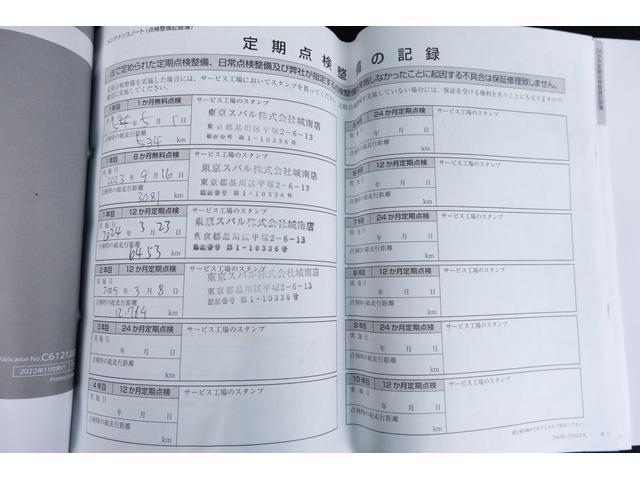 メンテナンスノート(点検整備記録簿)
定期点検整備の記録
法で定められた定期点検整備、日常点検整備及び弊社が指定する
しなかったことに起因する不具合は保証修理致しません。
1か月無料点検
サービス工場のスタンプ
534
東京スバル株式会社城南店
東京都品川区平塚2-6-13
認証番号 第1-10336号
1年目
6か月無料点検
サービス工場のスタンプ
実施日
2023年9月16日
点検時の総走行距離
3081 km
東京スバル株式会社城南店
東京都品川区平塚2-6-13
認証番号 第1-10336号
1年目
12か月定期点検
サービス工場のスタンプ
実施日
2024年3月23日
点検時の総走行距離
6453 km
東京スバル株式会社城南店
東京都品川区平塚2-6-13
認証番号 第1-10336号
2年目
12か月定期点検
サービス工場のスタンプ
実施日
2025年3月8日
点検時の総走行距離
12,764 km
東京スバル株式会社城南店
東京都品川区平塚2-6-13
認証番号 第1-10336号
3年目
24か月定期点検
サービス工場のスタンプ
実施日
年 月 日
点検時の総走行距離
km
4年目
12か月定期点検
サービス工場のスタンプ
実施日
年 月 日
点検時の総走行距離
km
24か月定期点検
サービス工場のスタンプ
年 月 日
点検時の総走行距離
km
12か月定期点検
サービス工場のスタンプ
年 月 日
点検時の総走行距離
km
7年目
24か月定期点検
サービス工場のスタンプ
実施日
年 月 日
点検時の総走行距離
km
8年目
12か月定期点検
サービス工場のスタンプ
実施日
年 月 日
点検時の総走行距離
km
24か月定期点検
サービス工場のスタンプ
実施日
年 月 日
点検時の総走行距離
km
10年目
12か月定期点検
サービス工場のスタンプ
実施日
年 月 日
点検時の総走行距離
km
Publication No.C6121
2022年11月発行
Printed in